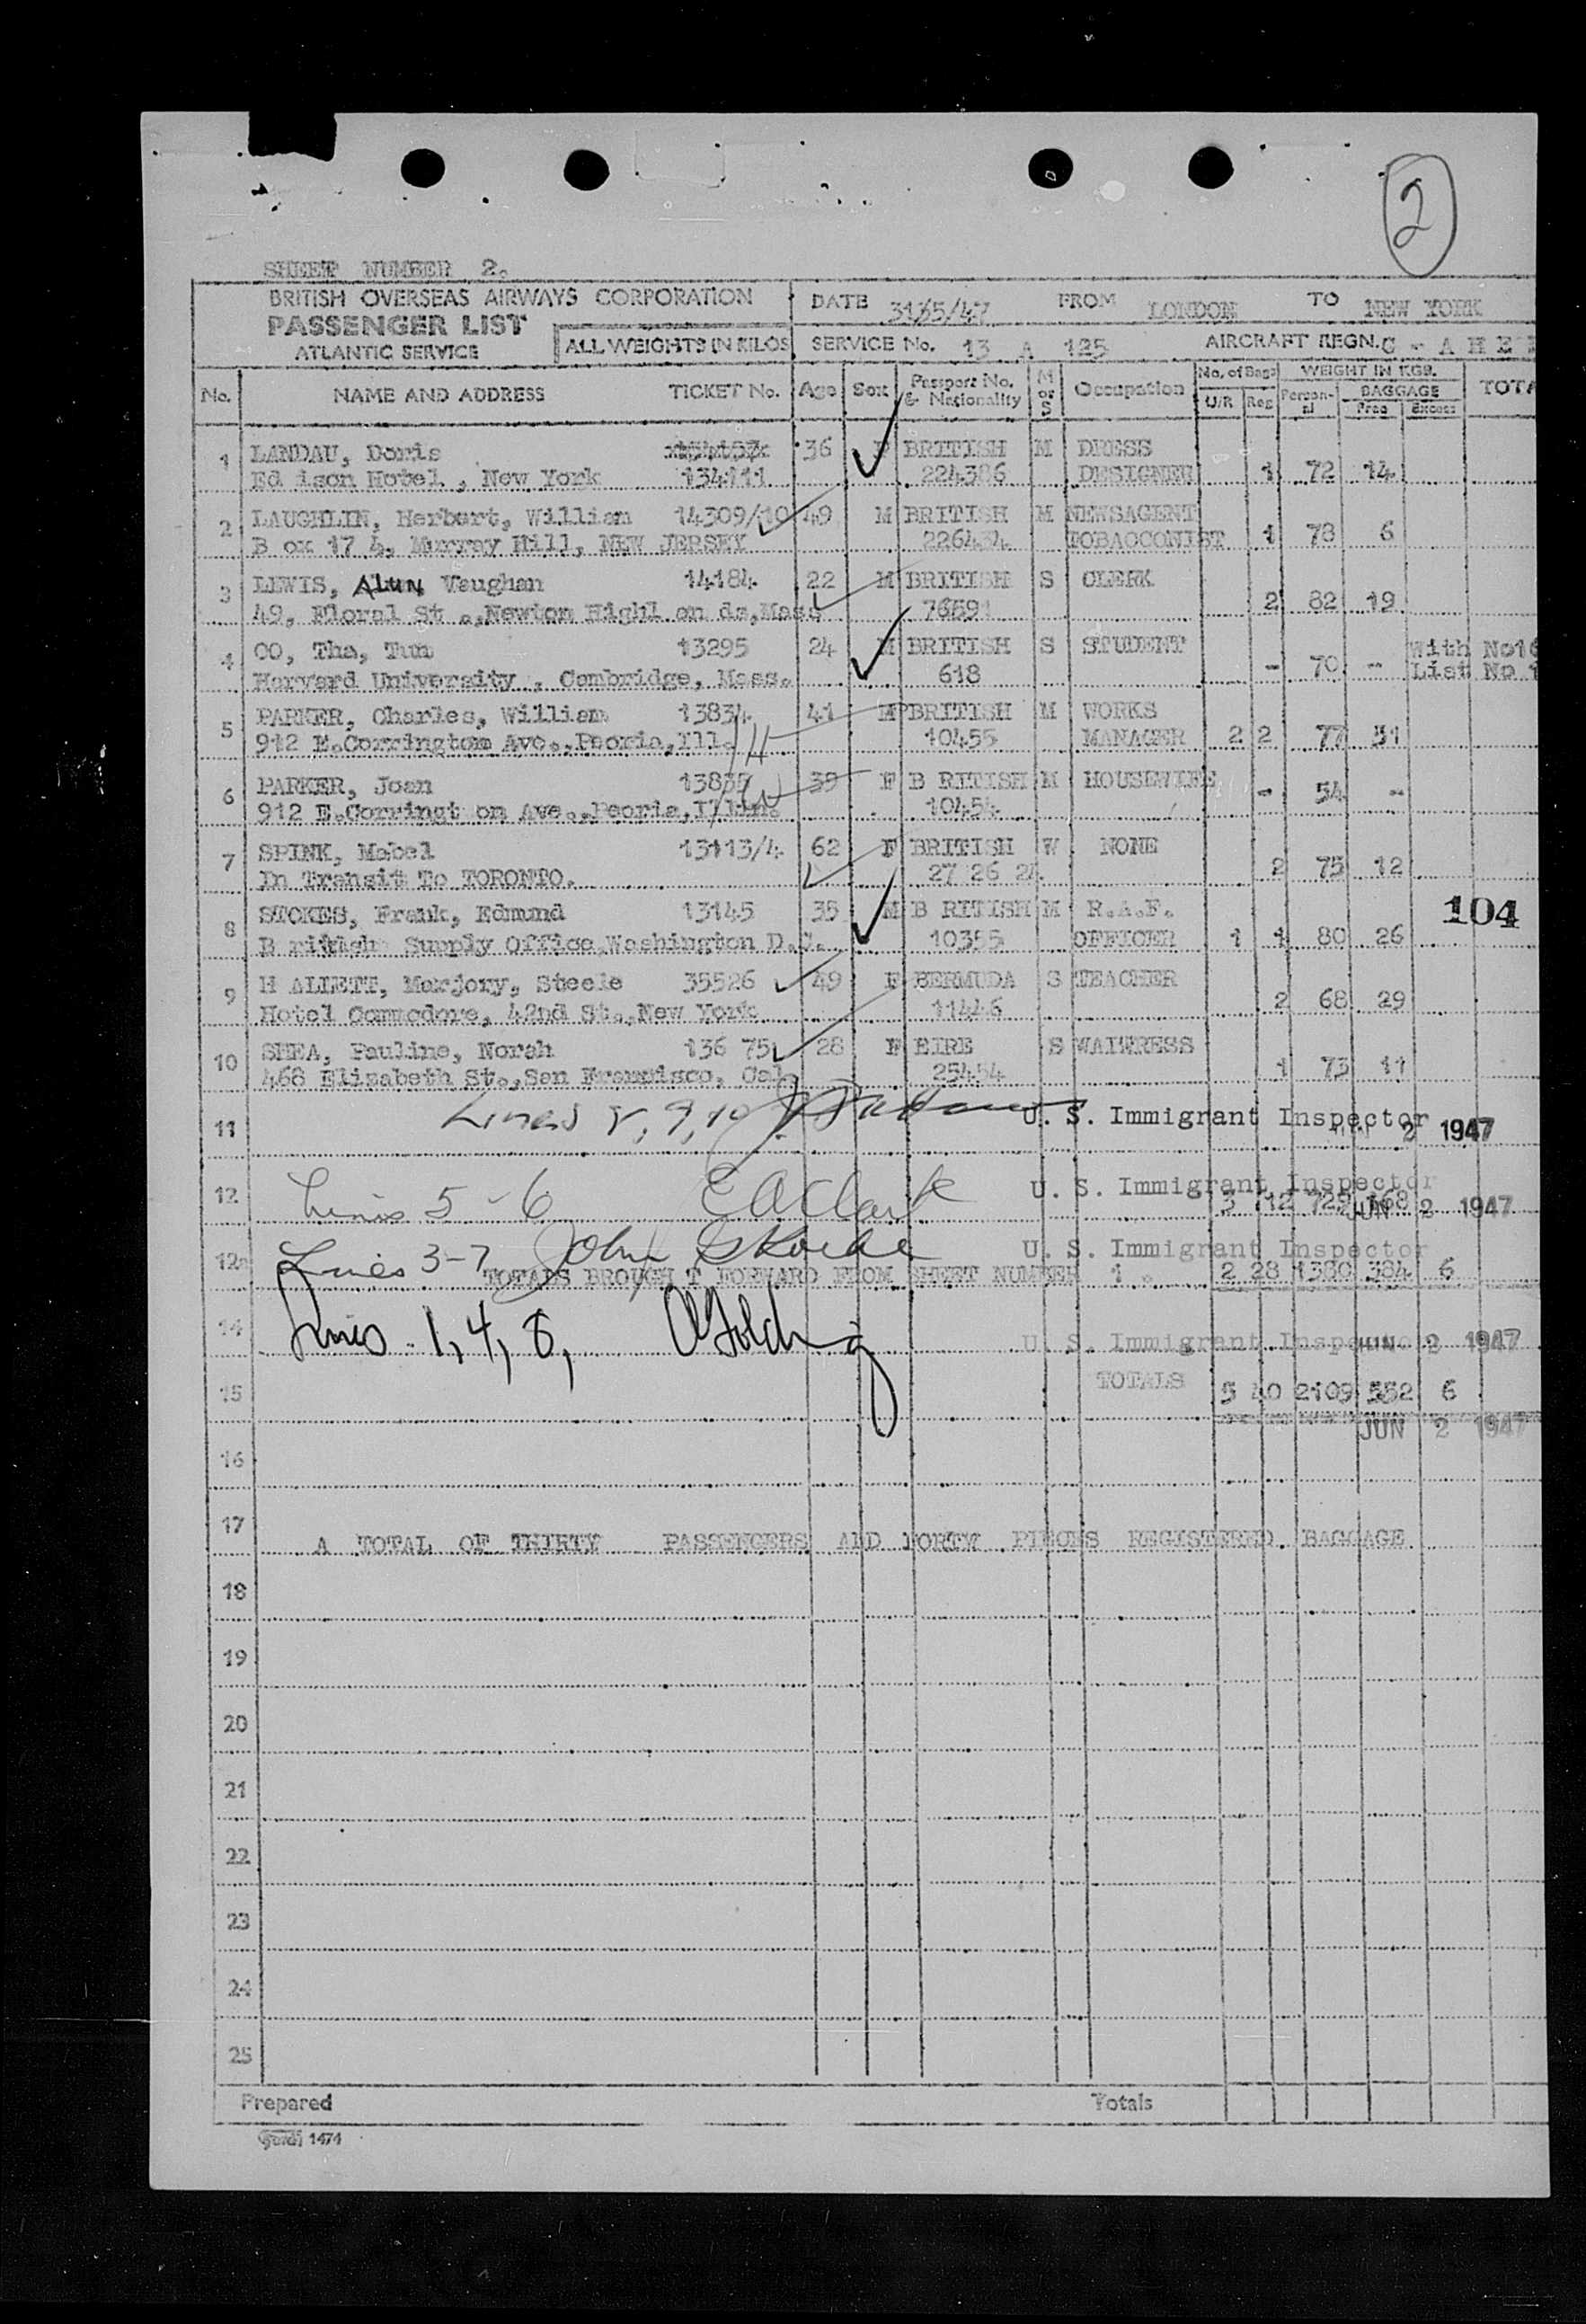 2
SHEET NUMBER 2.
BRITISH OVERSEAS AIRWAYS CORPORATION
PASSENGER LIST
ATLANTIC SERVICE
ALL WEIGHTS IN KILOS
DATE 31/5/47 FROM LONDON TO NEW YORK
SERVICE No. 13 A 125 AIRCRAFT REGN. G - A H E
No. NAME AND ADDRESS TICKET No. Age Sex Passport No. & Nationality M or S Occupation No. of Bags U/R Reg WEIGHT IN KGS. Person-al BAGGAGE Free Excess TOTA
1 LANDAU, Doris 36 F BRITISH M DRESS
Ed ison Hotel , New York 134111 224386 DESIGNER 1 72 14
2 LAUGHLIN, Herbert, William 14309/10 49 M BRITISH M NEWSAGENT
B ox 17 4, Murray Hill, NEW JERSEY 226434 TOBACCONIST 1 78 6
3 LEWIS, ALUN Vaughan 14184 22 M BRITISH S CLERK
49, Floral St .,Newton Highl an ds,Mass 76591 2 82 19
4 OO, Tha, Tun 13295 24 M BRITISH S STUDENT With No1
Harvard University , Cambridge, Mass. 618 - 70 - List No 1
5 PARKER, Charles, William 13834 41 M BRITISH M WORKS
912 E.Corrington Ave.,Peoria,Ill. 10455 MANAGER 2 2 77 51
6 PARKER, Joan 13835 39 F B RITISH M HOUSEWIFE
912 E.Corringt on Ave.,Peoria,Illin. 10454 - 54 -
7 SPINK, Mabel 13113/4 62 F BRITISH W NONE
In Transit To TORONTO. 27 26 24 2 75 12
8 STOKES, Frank, Edmund 13145 35 M B RITISH M R.A.F. 104
B ritish Supply Office,Washington D.C. 10355 OFFICER 1 1 80 26
9 H ALLETT, Marjory, Steele 35526 49 F BERMUDA S TEACHER
Hotel Commodore, 42nd St.,New York 11446 2 68 29
10 SHEA, Pauline, Norah 136 75 28 F EIRE S WAITRESS
468 Elizabeth St.,San Francisco, Cal 25454 1 73 11
11 Lines 8, 9, 10 U. S. Immigrant Inspector 2 1947
12 Lines 5 - 6 E A Clark U. S. Immigrant Inspector
3 12 729 168 JUN 2 1947
Lines 3-7 John U. S. Immigrant Inspector
TOTALS BROUGH T FORWARD FROM SHEET NUMBER 1 . 2 28 1380 384 6
14 Lines 1, 4, 8, Golding U. S. Immigrant Inspector JUN 2 1947
15 TOTALS 5 40 2109 552 6
JUN 2 1947
16
17 A TOTAL OF THIRTY PASSENGERS AND FORTY PIECES REGISTERED BAGGAGE
18
19
20
21
22
23
24
25
Prepared Totals
1474